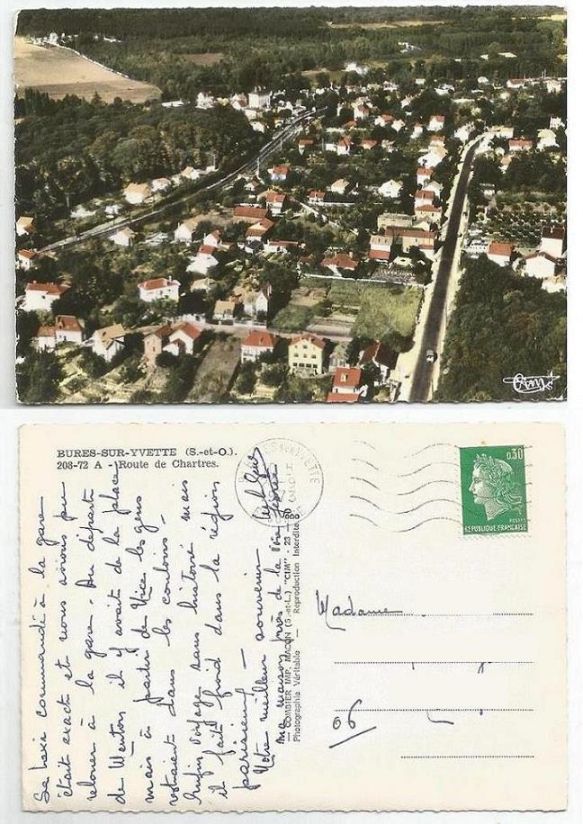 Cim
BURES-SUR-YVETTE (S.-et-O.).
208-72 A - Route de Chartres.
0,30
POSTES
REPUBLIQUE FRANÇAISE
COMBIER IMP. MACON (S.-et-L.), "CIM" - 23 -
Photographie Véritable - Reproduction Interdite
Madame
06
Le taxi commandé à la gare
était exact et nous avions pu
à la gare. Au départ
de Menton il y avait de la place
mais à partir de Nice les gens
étaient dans les couloirs -
Enfin voyage sans histoire mais
il fait froid dans la région
parisienne -
Votre meilleur souvenir
ma maison près de la